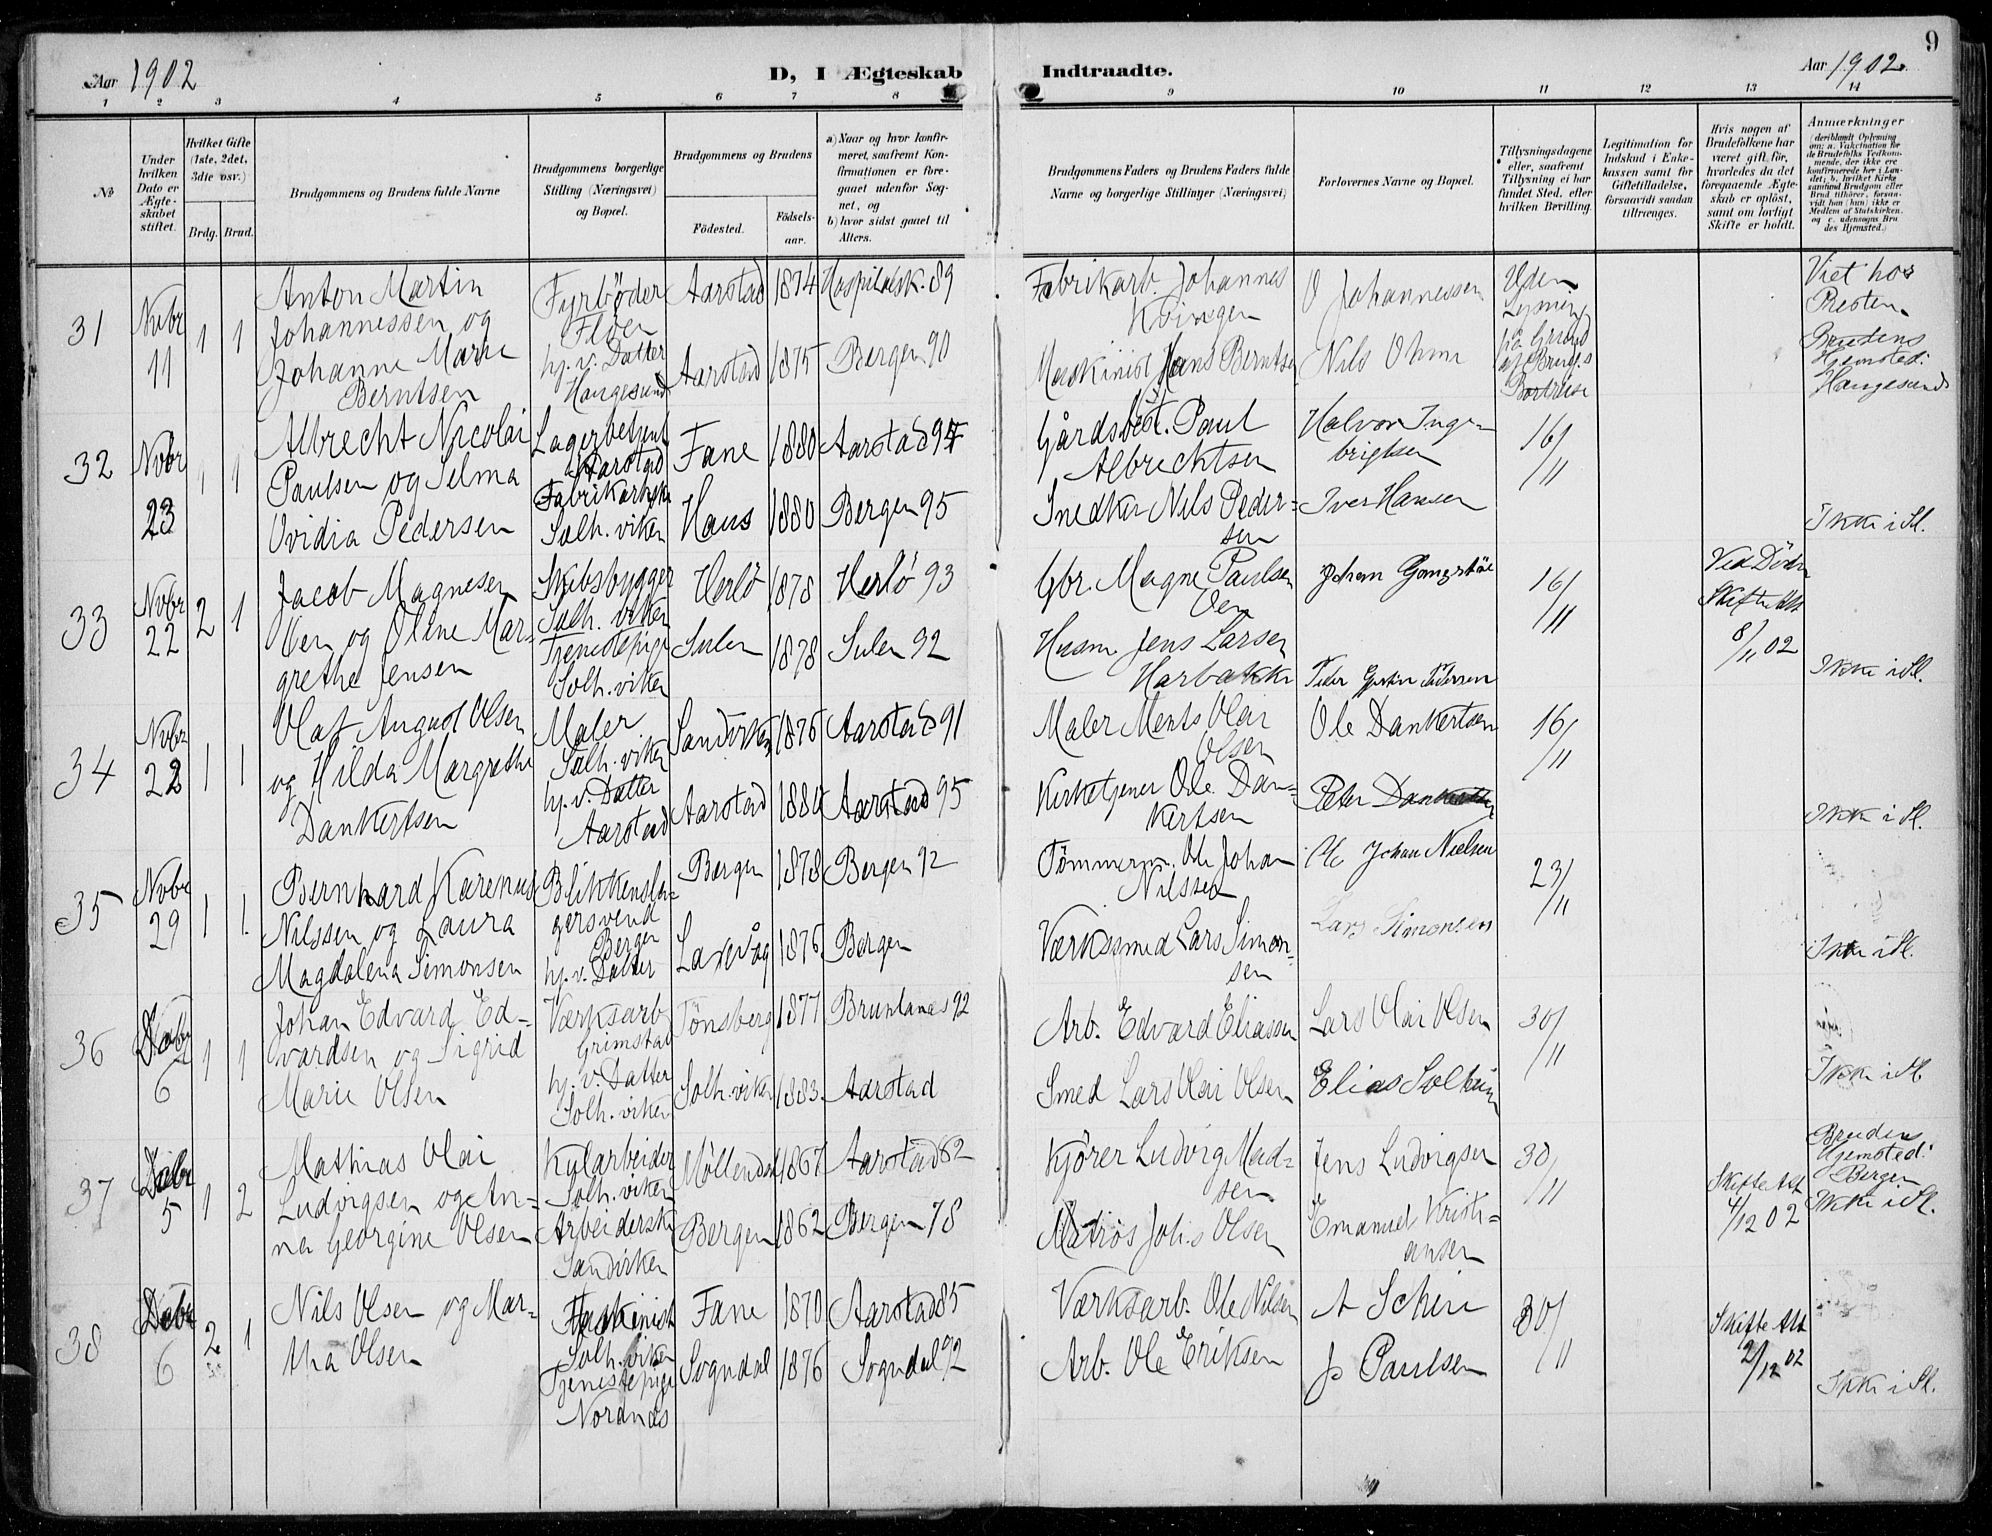 9
Aar 1902
D, I Ægteskab Indtraadte.
Aar 1902.
1 2 3 4 5 6 7 8 9 10 11 12 13 14
No
Under hvilken Dato er Ægteskabet stiftet.
Hvilket Gifte (1ste, 2det, 3die osv.)
Brdg. Brud.
Brudgommens og Brudens fulde Navne
Brudgommens borgerlige Stilling (Næringsvei) og Bopæl.
Brudgommens og Brudens
Födested.
Födselsaar.
a) Naar og hvor konfirmeret, saafremt Konfirmationen er foregaaet udenfor Sognet, og
b) hvor sidst gaaet til Alters.
Brudgommens Faders og Brudens Faders fulde Navne og borgerlige Stillinger (Næringsvei)
Forlovernes Navne og Bopæl.
Tillysningsdagene eller, saafremt Tillysning ei har fundet Sted, efter hvilken Bevilling.
Legitimation for Indskud i Enkekassen samt for Giftetilladelse, forsaavidt saadan tiltrænges.
Hvis nogen af Brudefolkene har været gift för, hvorledes da det foregaaende Ægteskab er oplöst, samt om lovligt Skifte er holdt.
Anmærkninger
(deriblandt Oplysning om: a. Vakcination for de Brudefolks Vedkommende, der ikke ere konfirmerede her i Landet; b. hvilket Kirkesamfund Brudgom eller Brud tilhörer, forsaavidt han (hun) ikke er Medlem af Statskirken, og c. udensogns Brudes Hjemsted.)
31 Nvbr 11 1 1
Anton Martin Johannessen og Johanne Marie Berntsen
Fyrbøder Fløen
hj. v. Datter Haugesund
Aarstad 1874 Hospitalsk. 89
Aarstad 1875 Bergen 90
Fabrikarb. Johannes Kvingen
Maskinist Hans Berntsen
O Johannessen
Nils Ohm
Uden Lysning på Grund af Brudgs Bortreise
Viet hos Presten
Brudens Hjemsted: Haugesund
32 Nvbr 23 1 1
Albrecht Nicolai Paulsen og Selma Ovidia Pedersen
Lagerbetjent Aarstad
Fabrikarbske Solh. viken
Fane 1880 Aarstad 94
Haus 1880 Bergen 95
Gårdsbest. Paul Albrechtsen
Snedker Nils Pedersen
Halvor Ingebrigtsen
Iver Hansen
16/11
Ikke i Sl.
33 Nvbr 22 2 1
Jacob Magnesen Øen og Oline Margrethe Jensen
Skibsbygger Solh. viken
Tjenestepige Solh. viken
Herlö 1878 Herlö 93
Sulen 1878 Sulen 92
Gbr. Magne Paulsen Øen
Husm. Jens Larsen Harbakke
Johan
16/11
Ved Döden
Skifte Att 8/11 02
Ikke i Sl.
34 Nvbr 22 1 1
Olaf August Olsen og Hilda Margrethe Dankertsen
Maler Solh. viken
hj. v. Datter Aarstad
Sandviken 1876 Aarstad 91
Aarstad 1880 Aarstad 95
Maler Ments Olai Olsen
Kirketjener Ole Dankertsen
Ole Dankertsen
Peter Dankertsen
16/11
Ikke i Sl.
35 Nvbr 29 1 1
Bernhard Karenus Nilssen og Laura Magdalena Simonsen
Blikkenslagersvend Bergen
hj. v. Datter
Bergen 1878 Bergen 92
Laxevåg 1876 Bergen
Tömmerm. Ole Johan Nilssen
Værksmed Lars Simonsen
Ole Johan Nielsen
Lars Simonsen
23/11
Ikke i Sl.
36 Dcbr 6 1 1
Johan Edvard Edvardsen og Sigrid Marie Olsen
Værksarb Grimstad
hj. v. Datter Solh. viken
Tönsberg 1877 Brunlanæs 92
Solh. viken 1883 Aarstad
Arb. Edvard Eliassen
Smed Lars Olai Olsen
Lars Olai Olsen
Elias Solheim
30/11
Ikke i Sl.
37 Dcbr 5 1 2
Mathias Olai Ludvigsen og Anna Georgine Olsen
Kularbeider Solh. viken
Arbeiderske Sandviken
Møllendal 1867 Aarstad 82
Bergen 1862 Bergen 78
Kjörer Ludvig Madsen
Matros Johs Olsen
Jens Ludvigsen
Emanuel Kristiansen
30/11
Skifte Att 4/12 02
Brudens Hjemsted: Bergen
Ikke i Sl.
38 Dcbr 6 2 1
Nils Olsen og Martha Olsen
Maskinist Solh. viken
Tjenestepige Nordnæs
Fane 1870 Aarstad 85
Sogndal 1876 Sogndal 92
Værksarb. Ole Nilsen
Arb. Ole Eriksen
J. Paulsen
30/11
Skifte Att 2/12 02
Ikke i Sl.